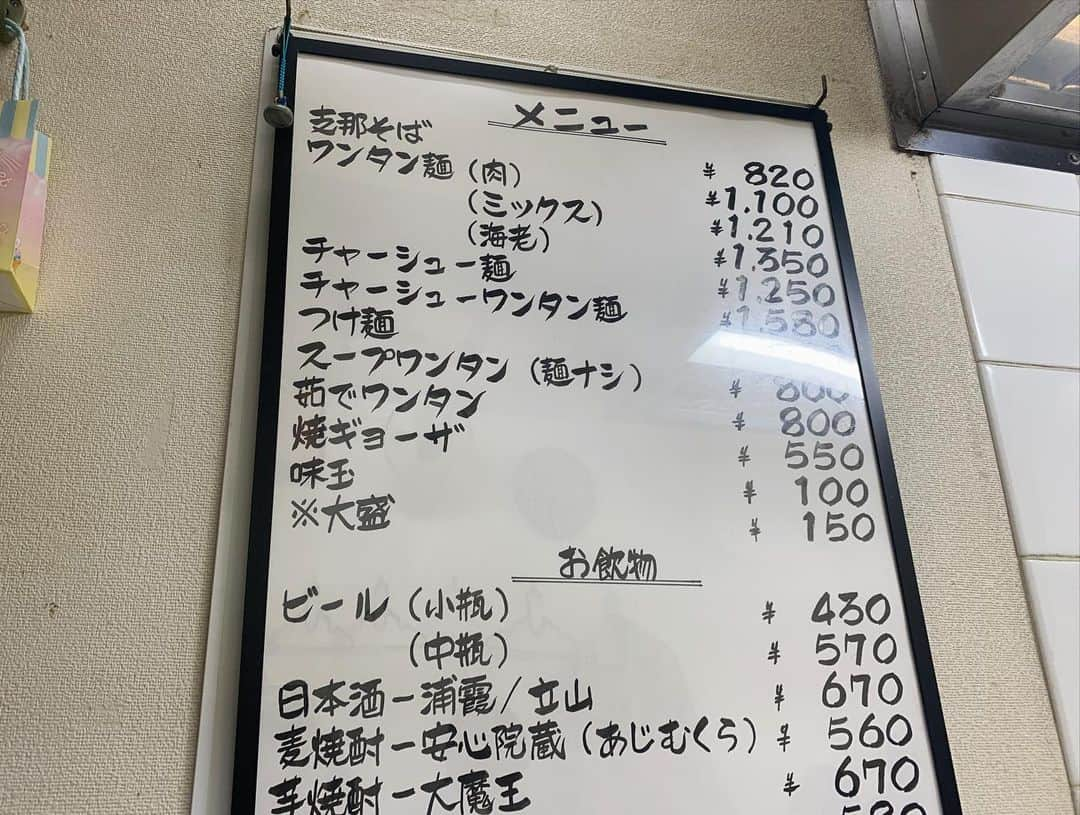 メニュー
支那そば ¥820
ワンタン麺(肉) ¥1.100
(ミックス) ¥1.210
(海老) ¥1.350
チャーシュー麺 ¥1.250
チャーシューワンタン麺 ¥1.580
つけ麺
スープワンタン(麺ナシ) ¥800
茹でワンタン ¥800
焼ギョーザ ¥550
味玉 ¥100
※大盛 ¥150
お飲物
ビール(小瓶) ¥430
(中瓶) ¥570
日本酒ー浦霞/立山 ¥670
麦焼酎ー安心院蔵(あじむくら) ¥560
芋焼酎ー大魔王 ¥670